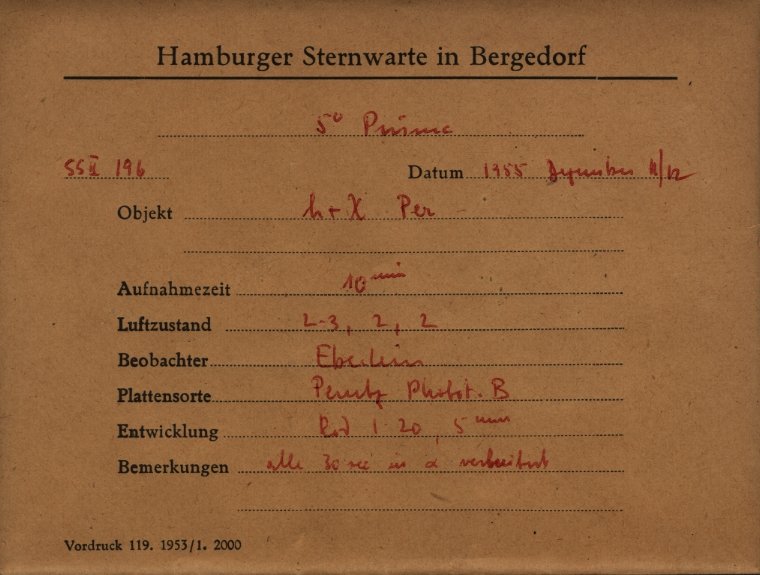 Hamburger Sternwarte in Bergedorf
5° Prisma
SSII 196 Datum 1955 Dezember 11/12
Objekt h + χ Per
Aufnahmezeit 10 min
Luftzustand 2-3, 2, 2
Beobachter Eberlein
Plattensorte Perutz Phot. B
Entwicklung Rod 1:20, 5 min
Bemerkungen alle 30 sec in α verbreitert
Vordruck 119. 1953/1. 2000